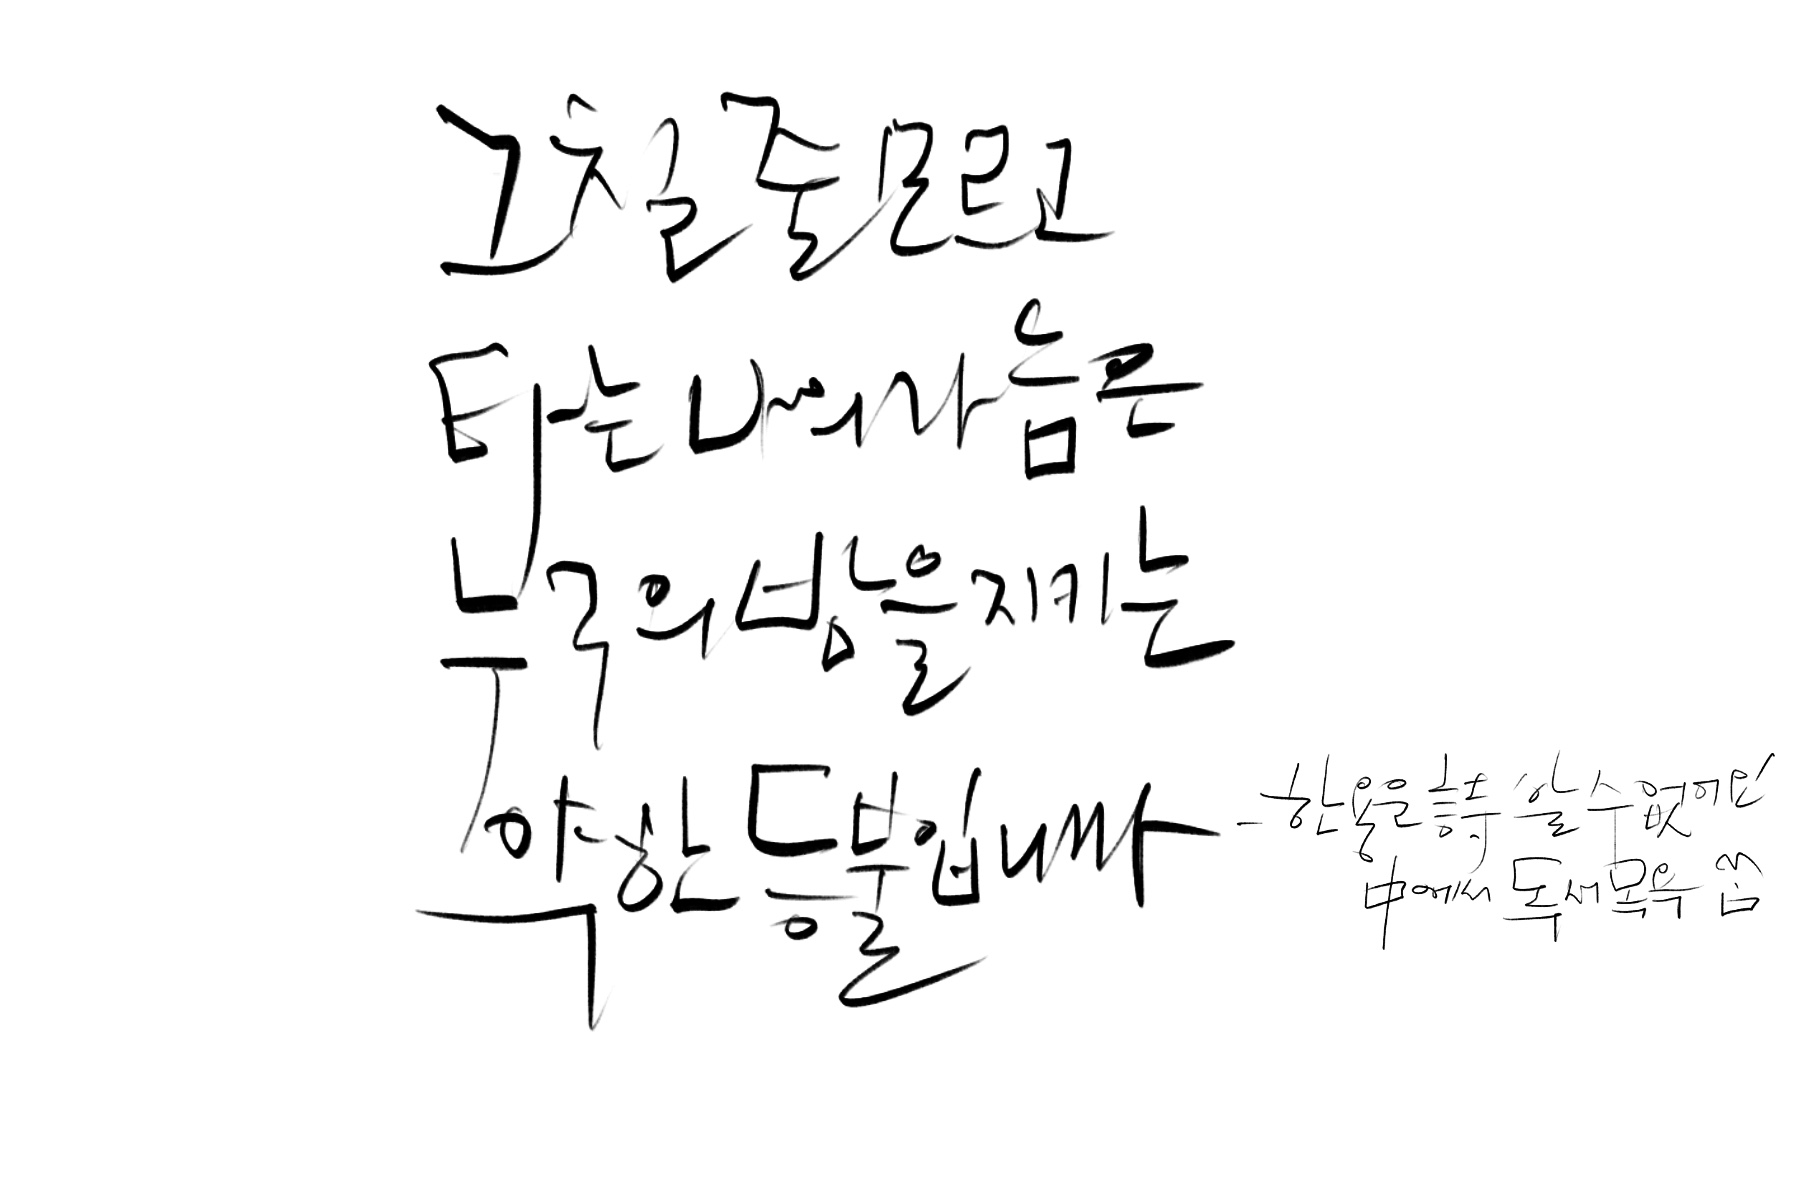 그칠 줄 모르고
타는 나의 가슴은
누구의 밤을 지키는
약한 등불입니까
- 한용운 詩 알 수 없어요
中에서 씀